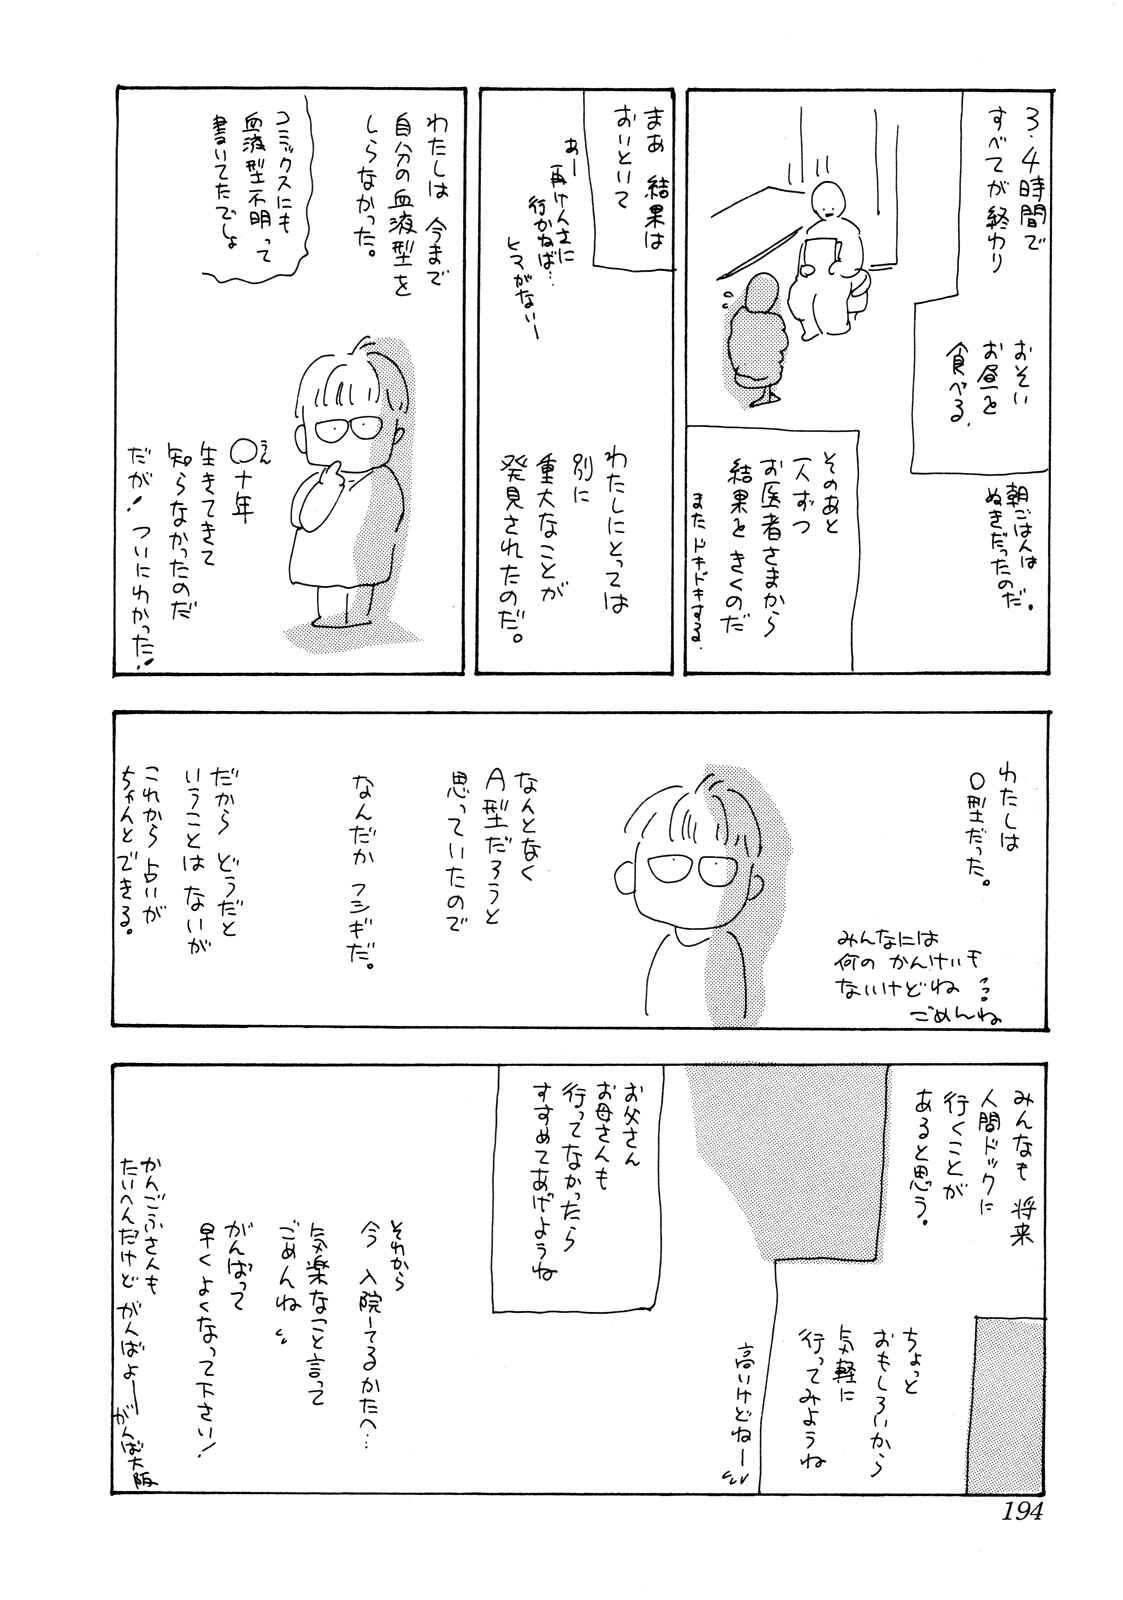 3・4時間で
すべてが終わり
おそい
お昼を
食べる。
朝ごはんは
ぬきだったのだ。
そのあと
一人ずつ
お医者さまから
結果を きくのだ
またドキドキする。
まあ 結果は
おいといて
あー
再けんさに
行かねば…
ヒマがないー
わたしにとっては
別に
重大なことが
発見されたのだ。
わたしは 今まで
自分の血液型を
しらなかった。
コミックスにも
血液型不明って
書いてたでしょ
〇十年
うん
生きてきて
知らなかったのだ
だが! ついにわかった!
わたしは
O型だった。
みんなには
何の かんけいも
ないけどね
ごめんね
なんとなく
A型だろうと
思っていたので
なんだか フシギだ。
だから どうだと
いうことは ないが
これから 占いが
ちゃんとできる。
みんなも 将来
人間ドックに
行くことが
あると思う。
ちょっと
おもしろいから
気軽に
行ってみようね
高いけどねー
お父さん
お母さんも
行ってなかったら
すすめてあげようね
それから
今 入院してるかたへ…
気楽なこと言って
ごめんね
がんばって
早くよくなって下さい!
かんごふさんも
たいへんだけど がんばよー
がんば大阪
194